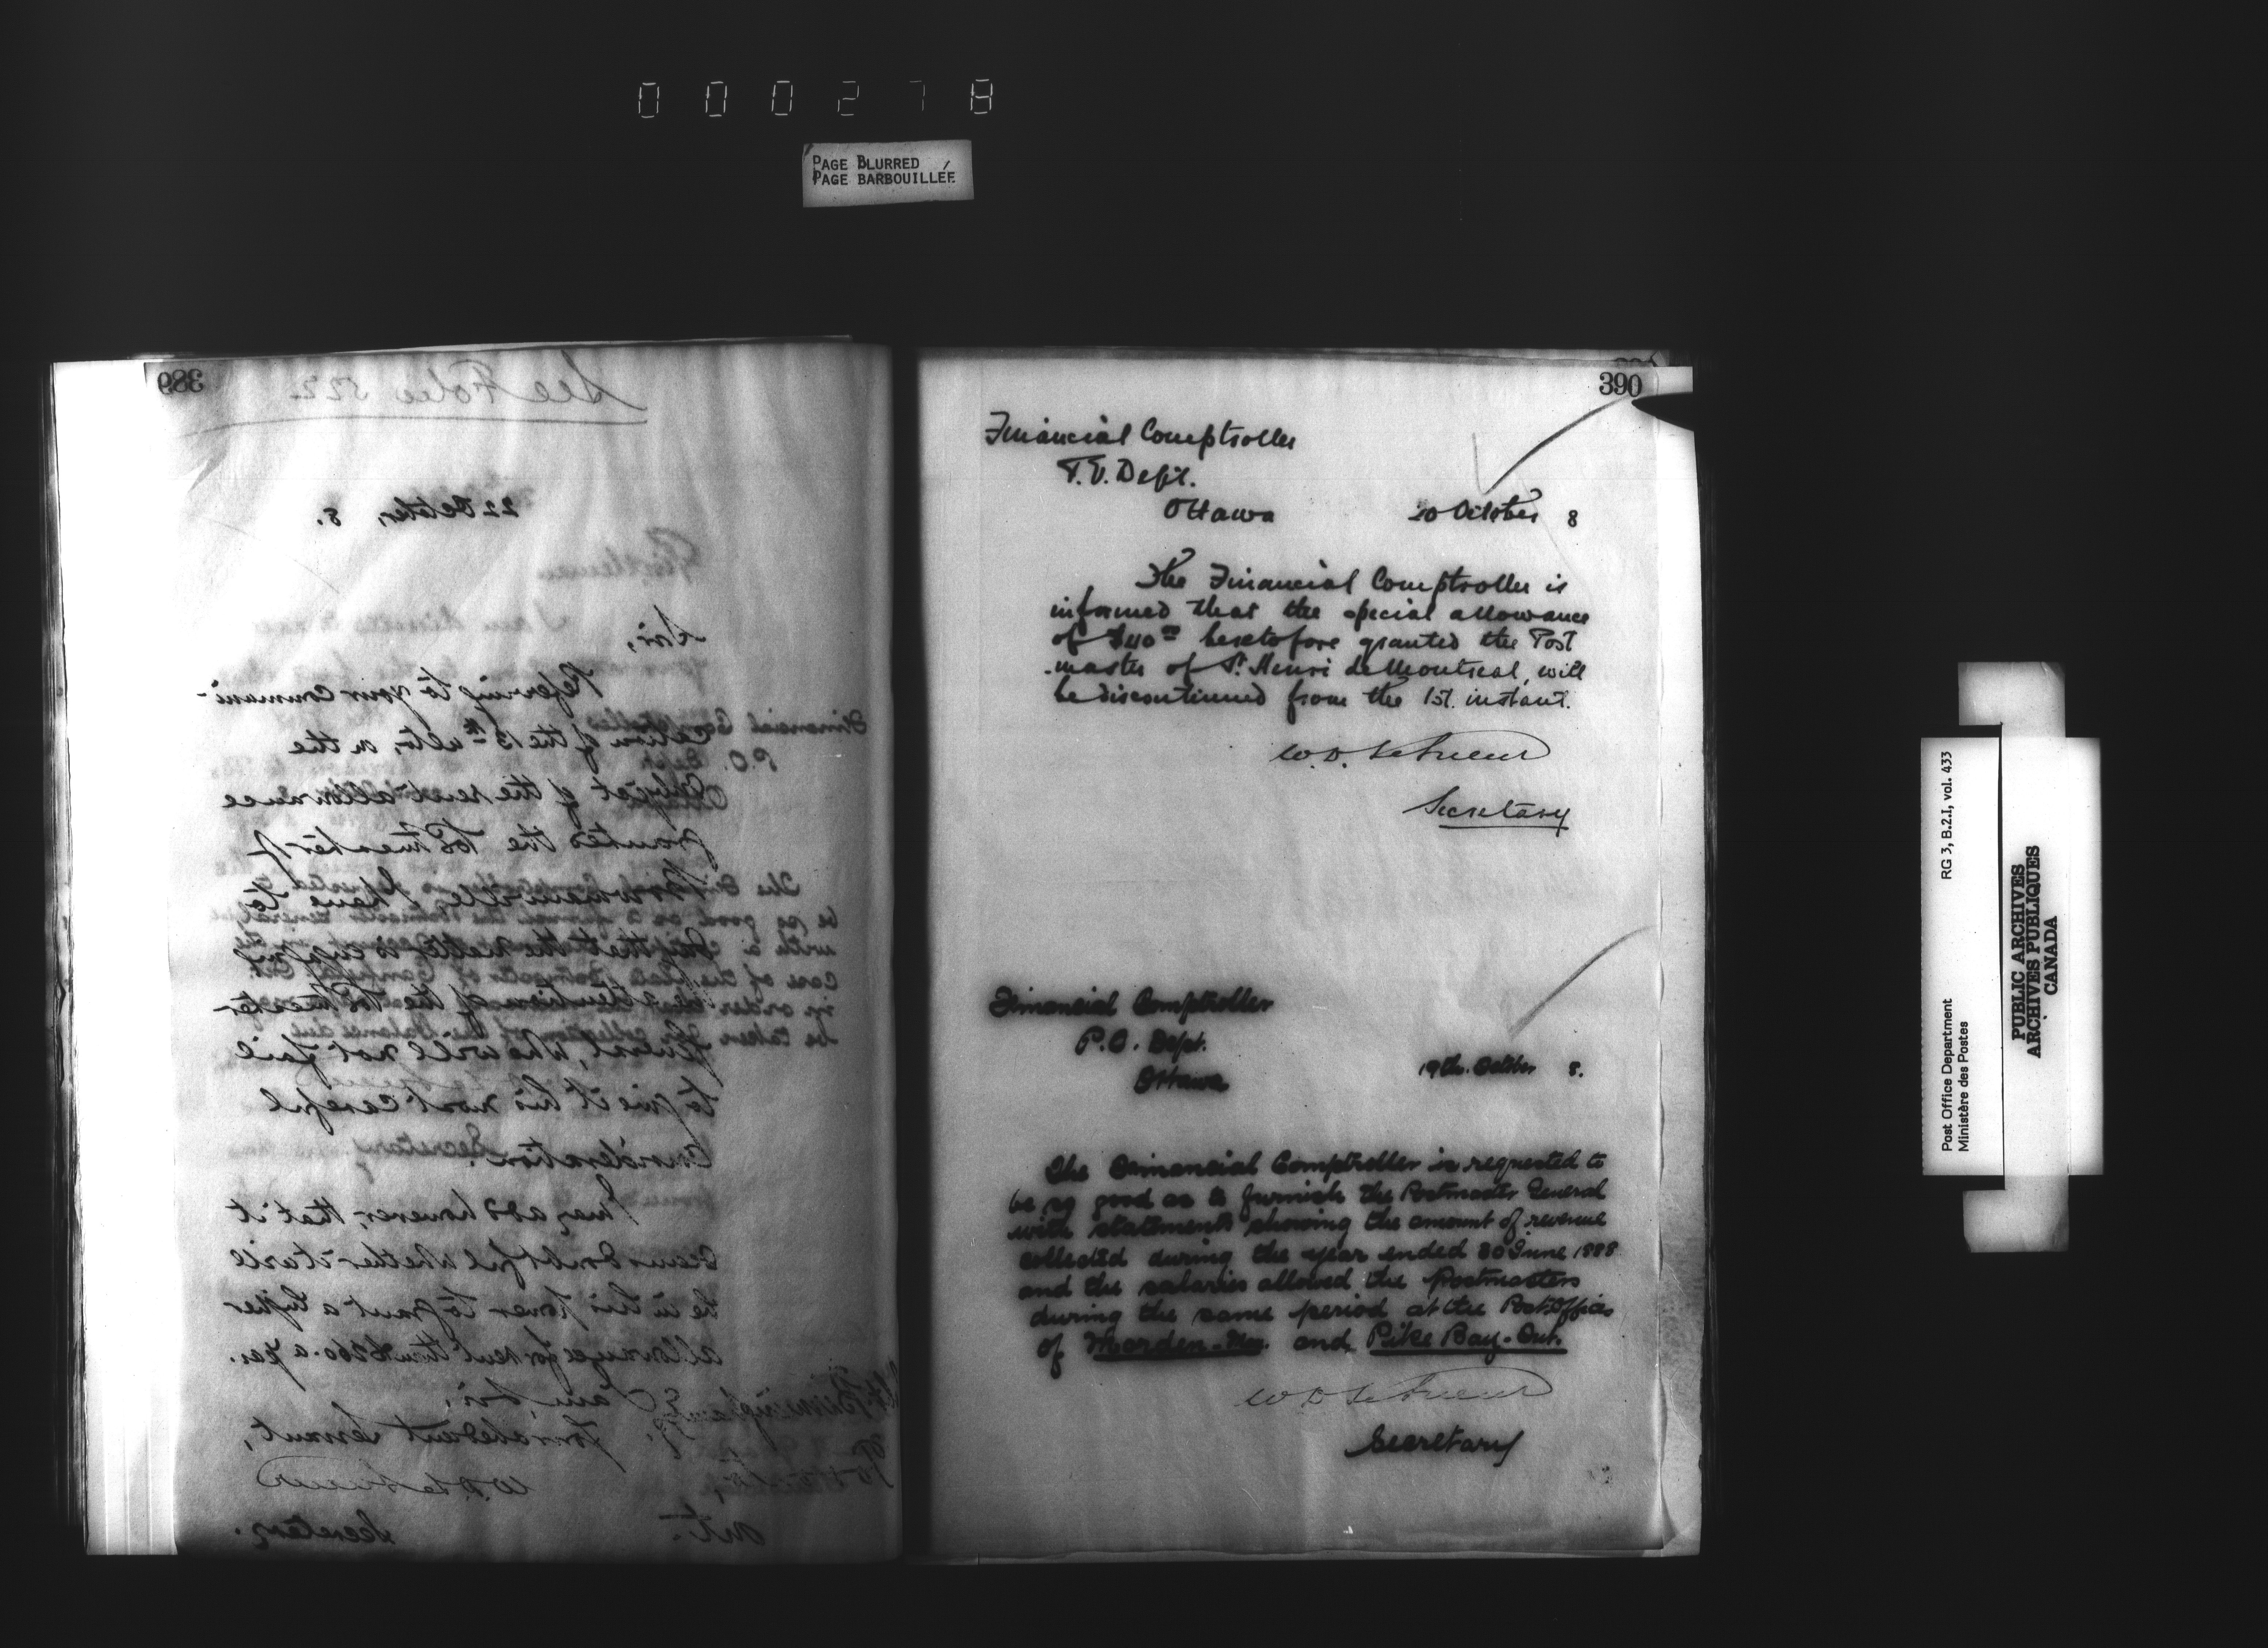 000278
PAGE BLURRED
PAGE BARBOUILLÉE
389
See Folio 522
22 October, 8.
Sir,
Referring to your communi-
cation of the 13th ulto, on the
subject of the rent allowance
granted the Postmaster of
Bowmanville, I have to
say that the matter is engaging
the attention of the Postmaster
General, who will not fail
to give it his most careful
consideration.
I may add however, that it
seems doubtful whether it will
be in his power to grant a higher
allowance for rent than $200. a year.
I am, Sir,
Your obedient Servant,
W. D. LeSueur
Secretary.
Ont.
390
Financial Comptroller
P.O. Dept.
Ottawa
20 October 8
The Financial Comptroller is
informed that the special allowance
of $40 00 heretofore granted the Post
master of St. Henri de Montreal, will
be discontinued from the 1st. instant.
W. D. LeSueur
Secretary
Financial Comptroller
P.O. Dept.
Ottawa
19th. October 8.
The Financial Comptroller is requested to
be so good as to furnish the Postmaster General
with statements showing the amount of revenue
collected during the year ended 30 June 1888
and the salaries allowed the Postmasters
during the same period at the Post Offices
of Morden - Man. and Pike Bay - Ont.
W D LeSueur
Secretary
Post Office Department
Ministère des Postes
RG 3, B.2.I, vol. 433
PUBLIC ARCHIVES
ARCHIVES PUBLIQUES
CANADA